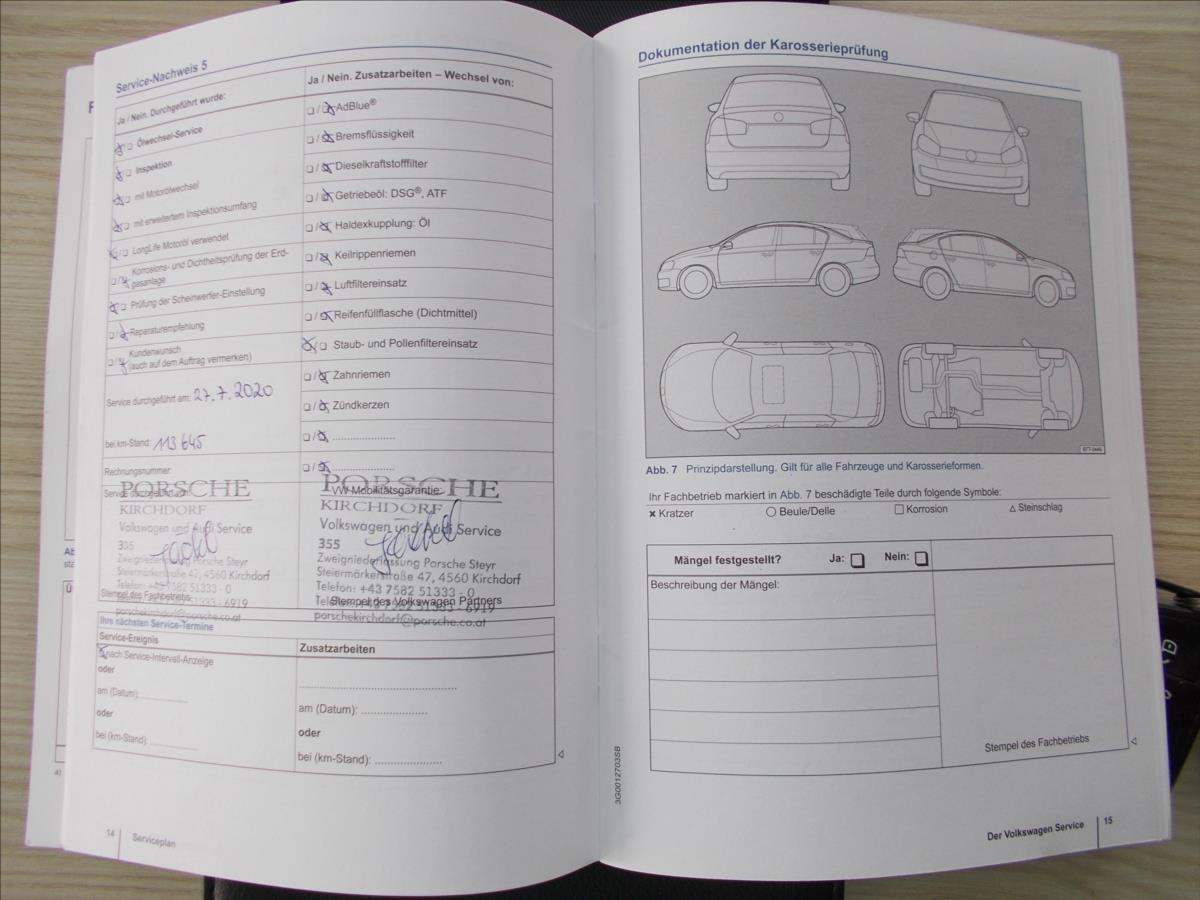 Service-Nachweis 5
Ja / Nein. Durchgeführt wurde:
Ölwechsel-Service
Inspektion
mit Motorölwechsel
mit erweitertem Inspektionsumfang
LongLife Motoröl verwendet
Korrosions- und Dichtheitsprüfung der Erd-
gasanlage
Prüfung der Scheinwerfer-Einstellung
Reparaturempfehlung
Kundenwunsch
(auch auf dem Auftrag vermerken)
Service durchgeführt am: 27.7.2020
bei km-Stand: 113645
Rechnungsnummer:
Ja / Nein. Zusatzarbeiten – Wechsel von:
AdBlue®
Bremsflüssigkeit
Dieselkraftstofffilter
Getriebeöl: DSG®, ATF
Haldexkupplung: Öl
Keilrippenriemen
Luftfiltereinsatz
Reifenfüllflasche (Dichtmittel)
Staub- und Pollenfiltereinsatz
Zahnriemen
Zündkerzen
PORSCHE
KIRCHDORF
Volkswagen und Audi Service
355
Zweigniederlassung Porsche Steyr
Steiermärkerstraße 47, 4560 Kirchdorf
Telefon: +43 7582 51333 - 0
Stempel des Fachbetriebs:
porschekirchdorf@porsche.co.at
VW Mobilitätsgarantie:
PORSCHE
KIRCHDORF
Volkswagen und Audi Service
355
Zweigniederlassung Porsche Steyr
Steiermärkerstraße 47, 4560 Kirchdorf
Telefon: +43 7582 51333 - 0
Stempel des Volkswagen Partners
porschekirchdorf@porsche.co.at
Ihre nächsten Service-Termine
Service-Ereignis
nach Service-Intervall-Anzeige
oder
am (Datum):
oder
bei (km-Stand):
Zusatzarbeiten
am (Datum):
oder
bei (km-Stand):
14 Serviceplan
Dokumentation der Karosserieprüfung
Abb. 7 Prinzipdarstellung. Gilt für alle Fahrzeuge und Karosserieformen.
Ihr Fachbetrieb markiert in Abb. 7 beschädigte Teile durch folgende Symbole:
Kratzer Beule/Delle Korrosion Steinschlag
Mängel festgestellt? Ja: Nein:
Beschreibung der Mängel:
Stempel des Fachbetriebs
3G0012703SB
Der Volkswagen Service 15